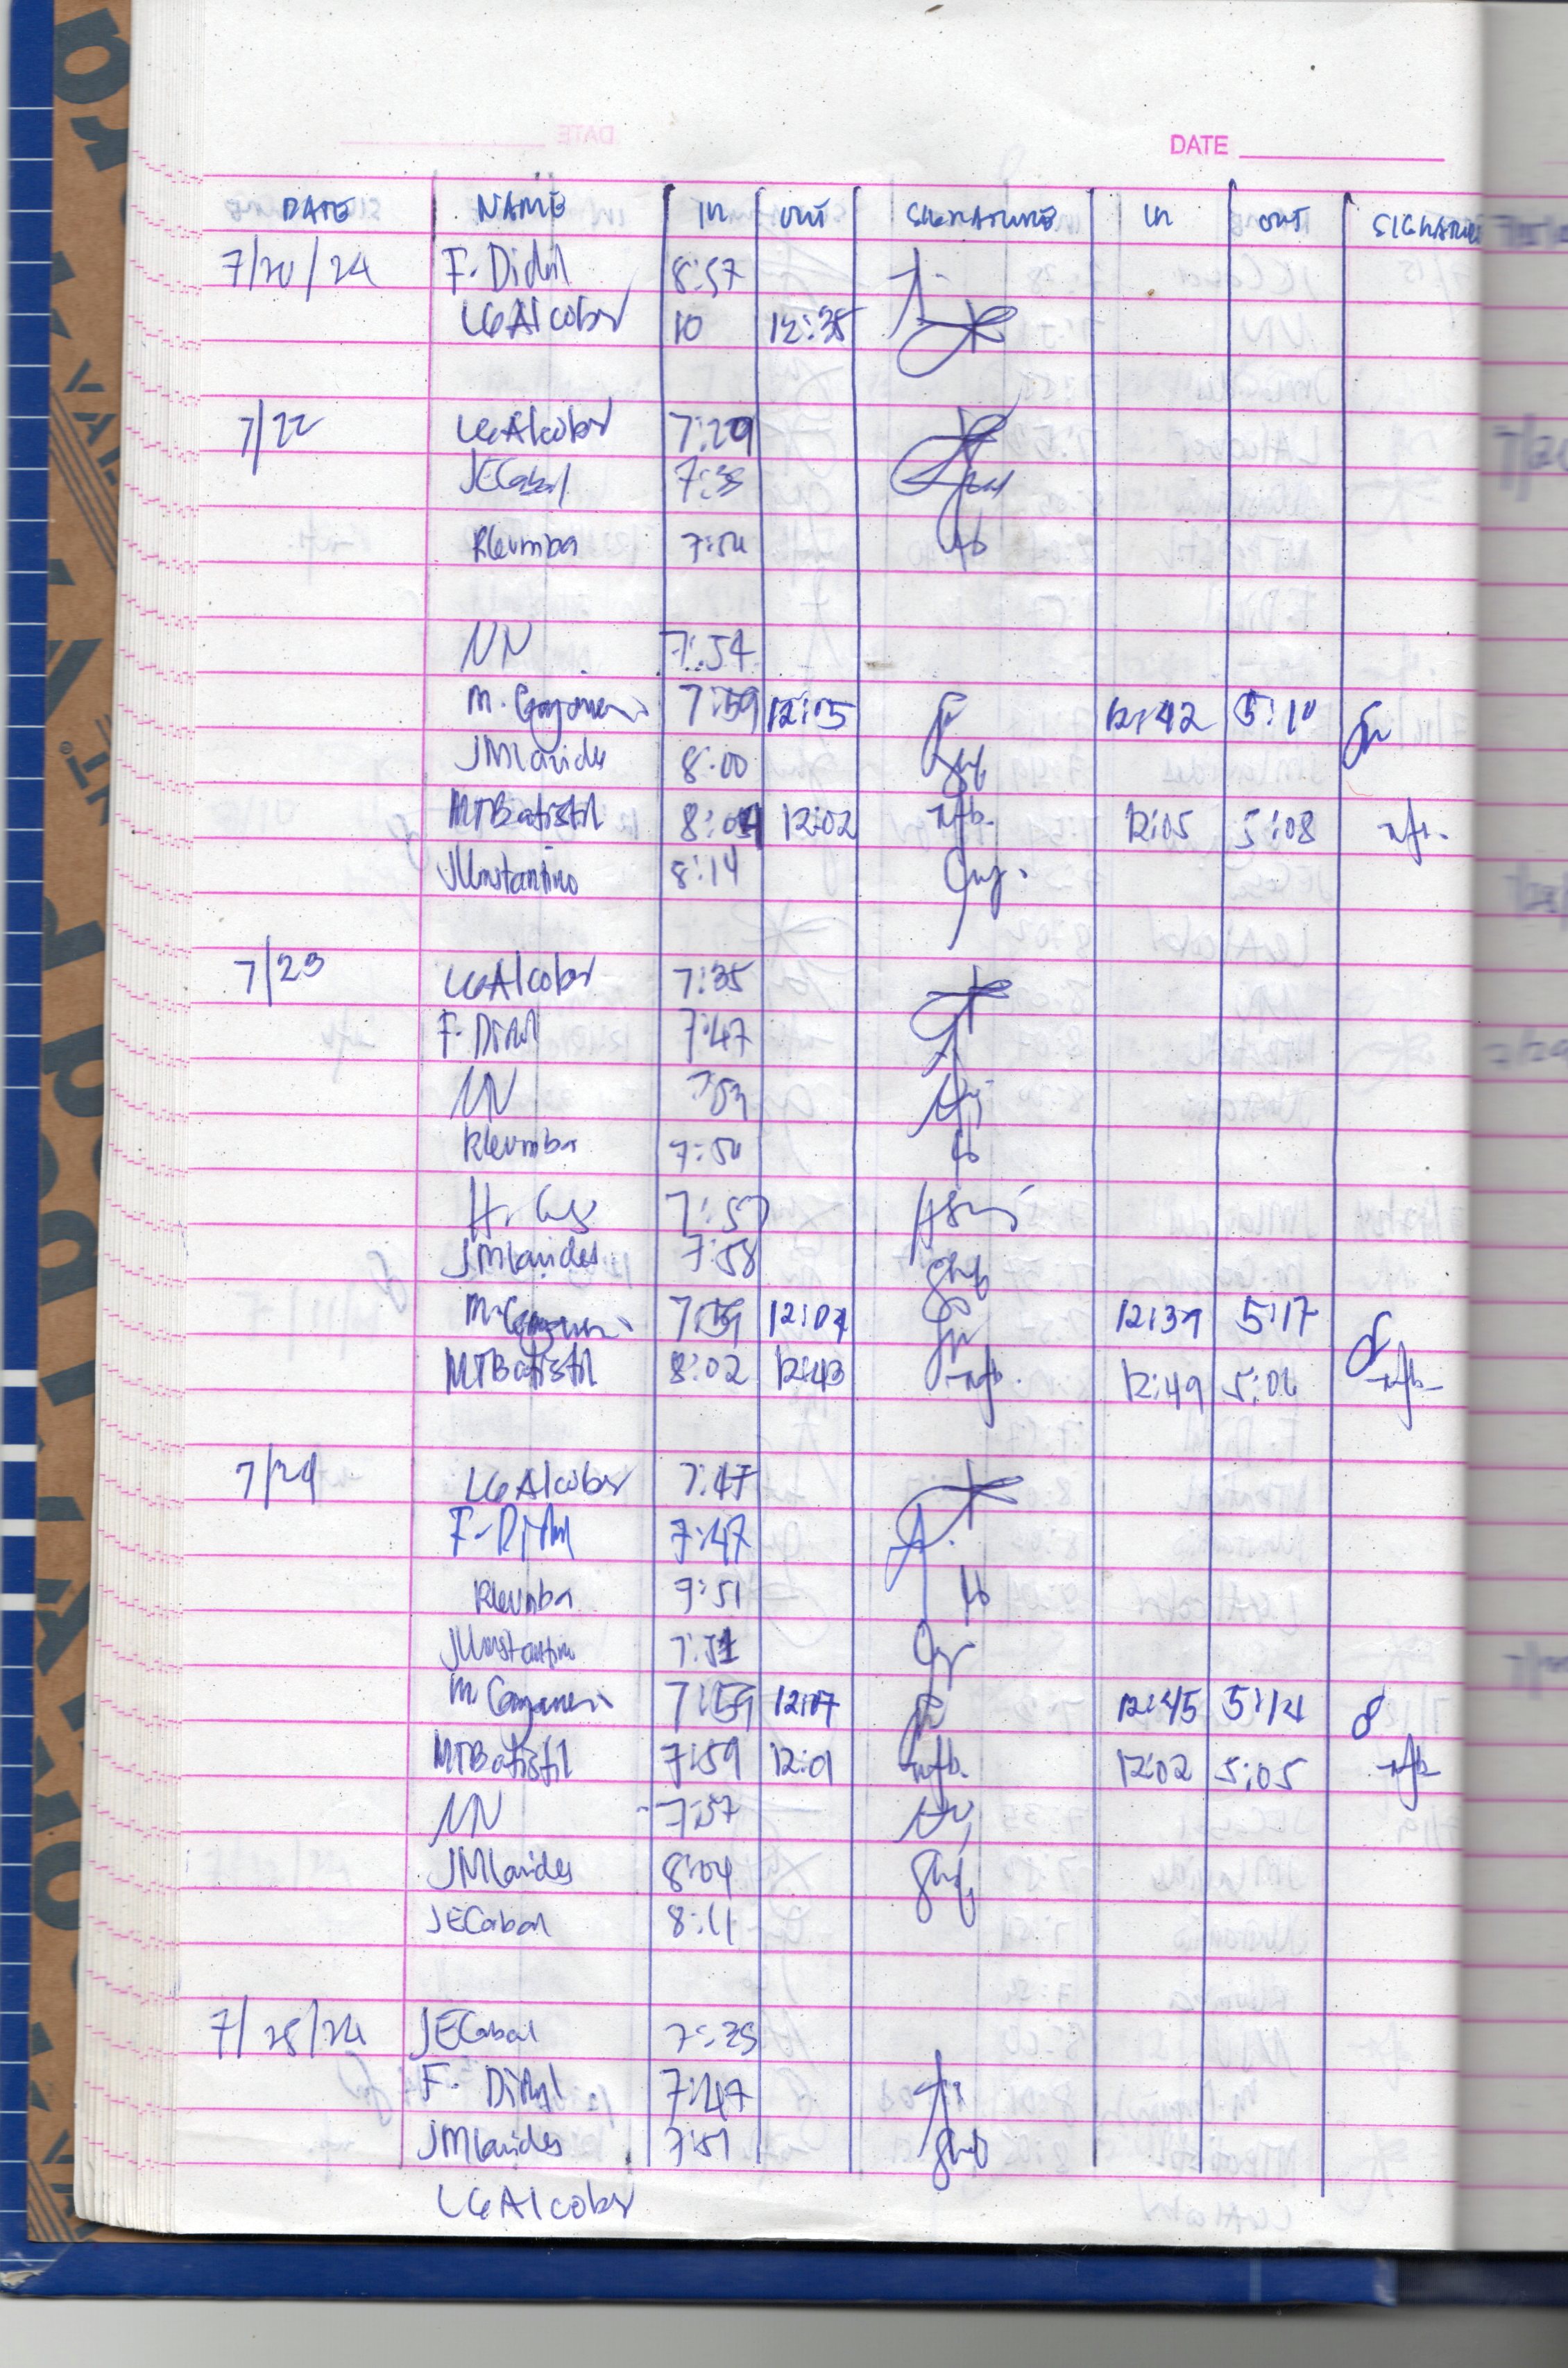 DATE
DATE NAME IN OUT SIGNATURE IN OUT SIGNATURE
7/20/24 F. Didal 8:57
LGAlcober 10 12:35
7/22 LGAlcober 7:29
JECabal 7:33
RLeumba 7:54
NN 7:54
M. 7:59 12:05 12:42 5:10
JMlavides 8:00
MTBatistil 8:04 12:02 mfb. 12:05 5:08 mfb.
JConstantino 8:14
7/23 LGAlcober 7:35
F. Didal 7:47
NN 7:53
RLeumba 7:54
H. 7:57
JMlavides 7:58
M. 7:59 12:04 12:39 5:17
MTBatistil 8:02 12:43 mfb. 12:49 5:06 mfb
7/24 LGAlcober 7:47
F. Didal 7:47
RLeumba 9:51
JConstantino 7:51
M. 7:59 12:07 12:45 5:14
MTBatistil 7:59 12:01 mfb. 12:02 5:05 mfb
NN 7:57
JMlavides 8:04
JECabal 8:11
7/25/24 JECabal 7:35
F. Didal 7:47
JMlavides 7:51
LGAlcober